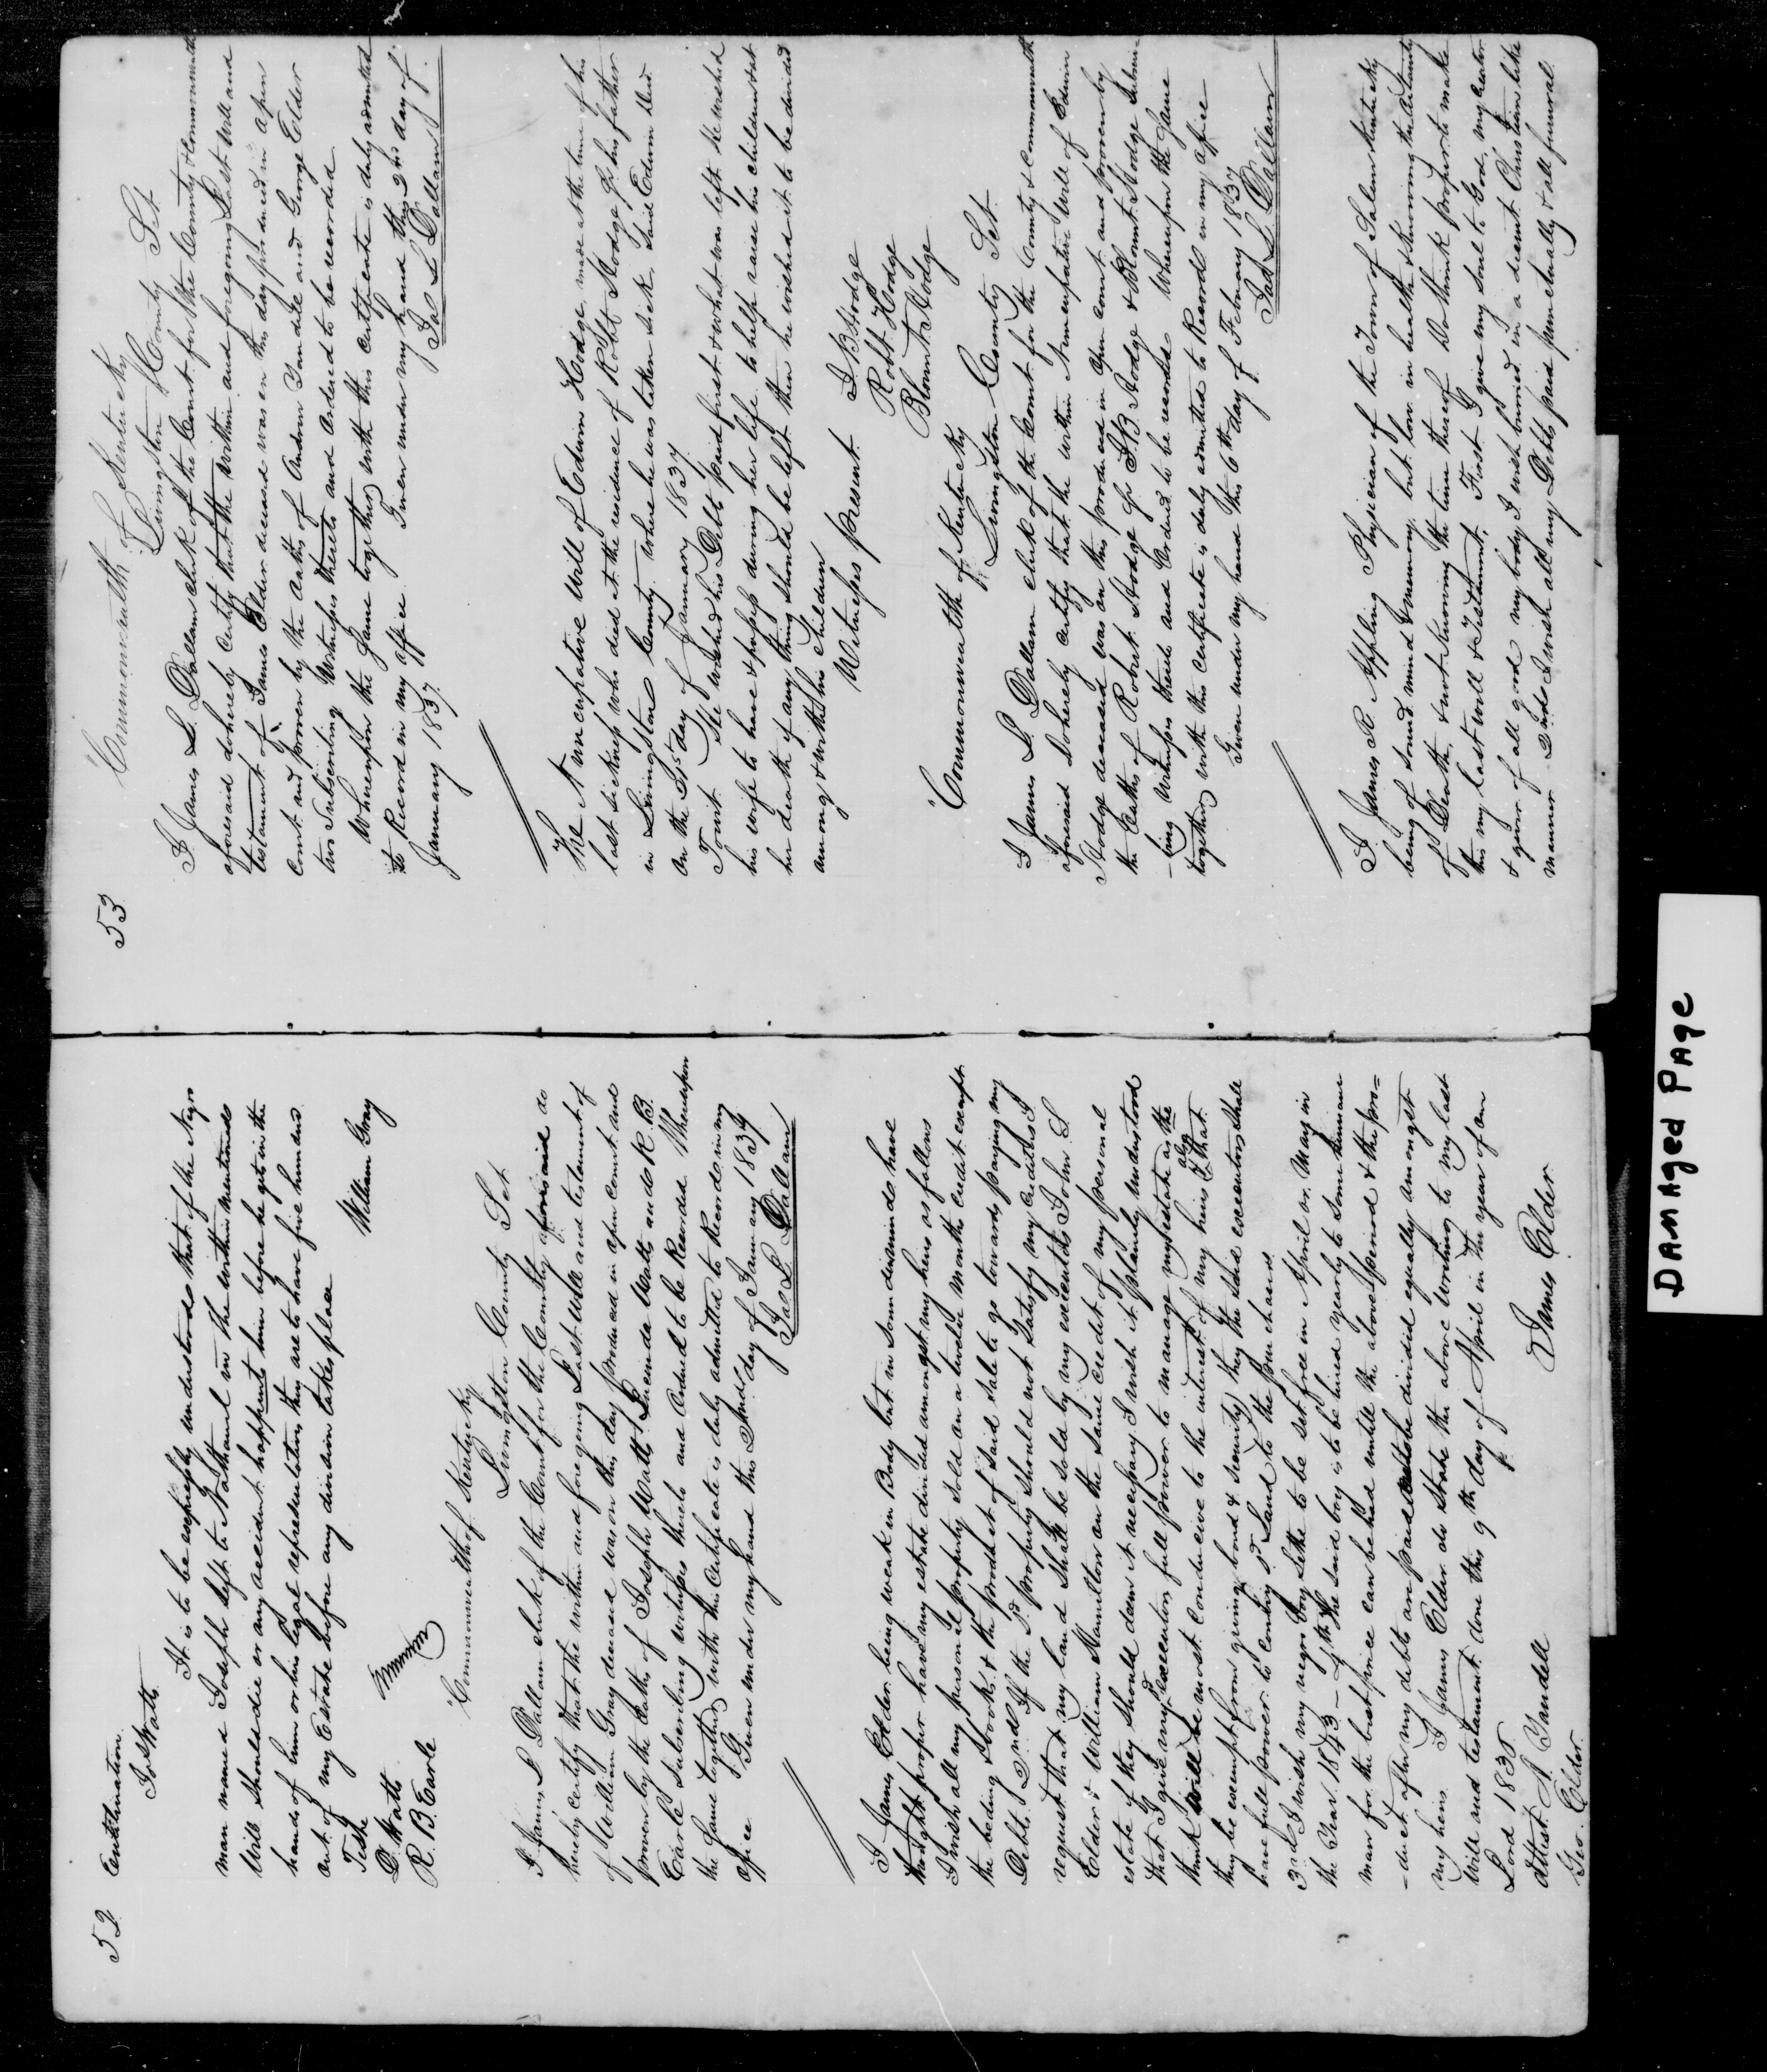 52
Continuation
Jos Watts
It is to be expressly understood that if the Negro
man named Joseph left to Nathaniel in the within mentioned
Will should die or any accident happents him before he gets in the
hands of him or his legal representatives they are to have five hundred
out of my Estate before any division takes place
Teste
William Gray
D. Watts
R. B. Earle
Commonwealth of Kentucky
Livingston County Sct
I James L Dallam clerk of the Court for the County aforesaid do
hereby certify that the within and foregoing Last Will and testament of
of William Gray deceased was on this day produced in open court and
proven by the Oaths of Joseph Watts Lucinda Watts and R. B.
Earle subscribing witnesses thereto and Ordered to be Recorded Whereupon
the same together with this Certificate is duly admitted to Record in my
office Given under my hand this 2nd day of January 1837
Jas L Dallam
I James Elder being weak in Body but in sound mind do have
thought proper have my estate divided amongst my heirs as follows
I wish all my personal property sold on a twelve months credit except
the beding & books & the product of said sale to go towards paying my
Debts. 2nd If the sd. property should not satisfy my creditors I
request that my land shall be sold by my executors John S
Elder & William Hamilton on the same credit of my personal
estate if they should deem it necessary I wish it plainly understood
that I give my sd executors full power to manage my estate as the
think will be most conducive to the interest of my heirs & that also
they be exempt from giving bond & security they the said executors shall
have full power to convey sd Land to the purchaser
3rd I wish my negro boy Sethe to be set free in April or May in
the Year 1843 - 4th The said boy is to be hired yearly to some humane
man for the best price can be had until the above period & the pro=
-duct after my debts are paid to be divided equally amongst
my heirs I James Elder do State the above writing to my last
Will and testament done this 9th day of April in the year of our
Lord 1835
James Elder
Attest A Yandell
Geo. Elder
53
Commonwealth of Kentucky
Livingston County Sct
I James L. Dallam clerk of the Court for the County & Commonwealth
aforesaid do hereby certify that the within and foregoing Last Will and
testament of James Elder deceased was on this day produced in open
Court and proven by the Oaths of Andrew Yandell and George Elder
two subscribing Witnesses thereto and Ordered to be recorded
Whereupon the same together with this Certificate is duly admitted
to Record in my office Given under my hand this 2nd day of
January 1837.
Jas L Dallam
The Nuncupative Will of Edwin Hodge, made at the time of his
last sickness who died at the residence of Robt Hodge Jr his father
in Livingston County where he was taken sick Said Edwin Died
on the 15 day of January 1837
Towit He wished his Debts paid first & what was left he wished
his wife to have & possess during her life to help raise his children & at
her death if any thing should be left then he wished it to be divided
among & with his Children
Witnesses present
S B Hodge
Robt Hodge
Blount Hodge
Commonwealth of Kentucky
Livingston County Sct.
I James L Dallam clerk of the Court for the County & Commonwealth
aforesaid Do hereby certify that the within Nuncupative Will of Edwin
Hodge deceased was on this produced in open court and proven by
the Oaths of Robert Hodge Jr S.B. Hodge & Blount Hodge Subscri-
-bing witnesses thereto and Ordered to be recorded Whereupon the same
together with this certificate is duly admitted to Record in my office
Given under my hand this 6th day of February 1837
Jas L Dallam
I James R. Appling Physician of the Town of Salem Kentucky
being of sound mind & memory but low in health & knowing the certainty
of Death, & not knowing the time thereof Do think proper to make
this my last will & Testament. First I give my soul to God, my creator
& giver of all good my body I wish burried in a decent Christian like
manner 2nd I wish all my Debts paid punctually & all funeral
DAMAged PAge